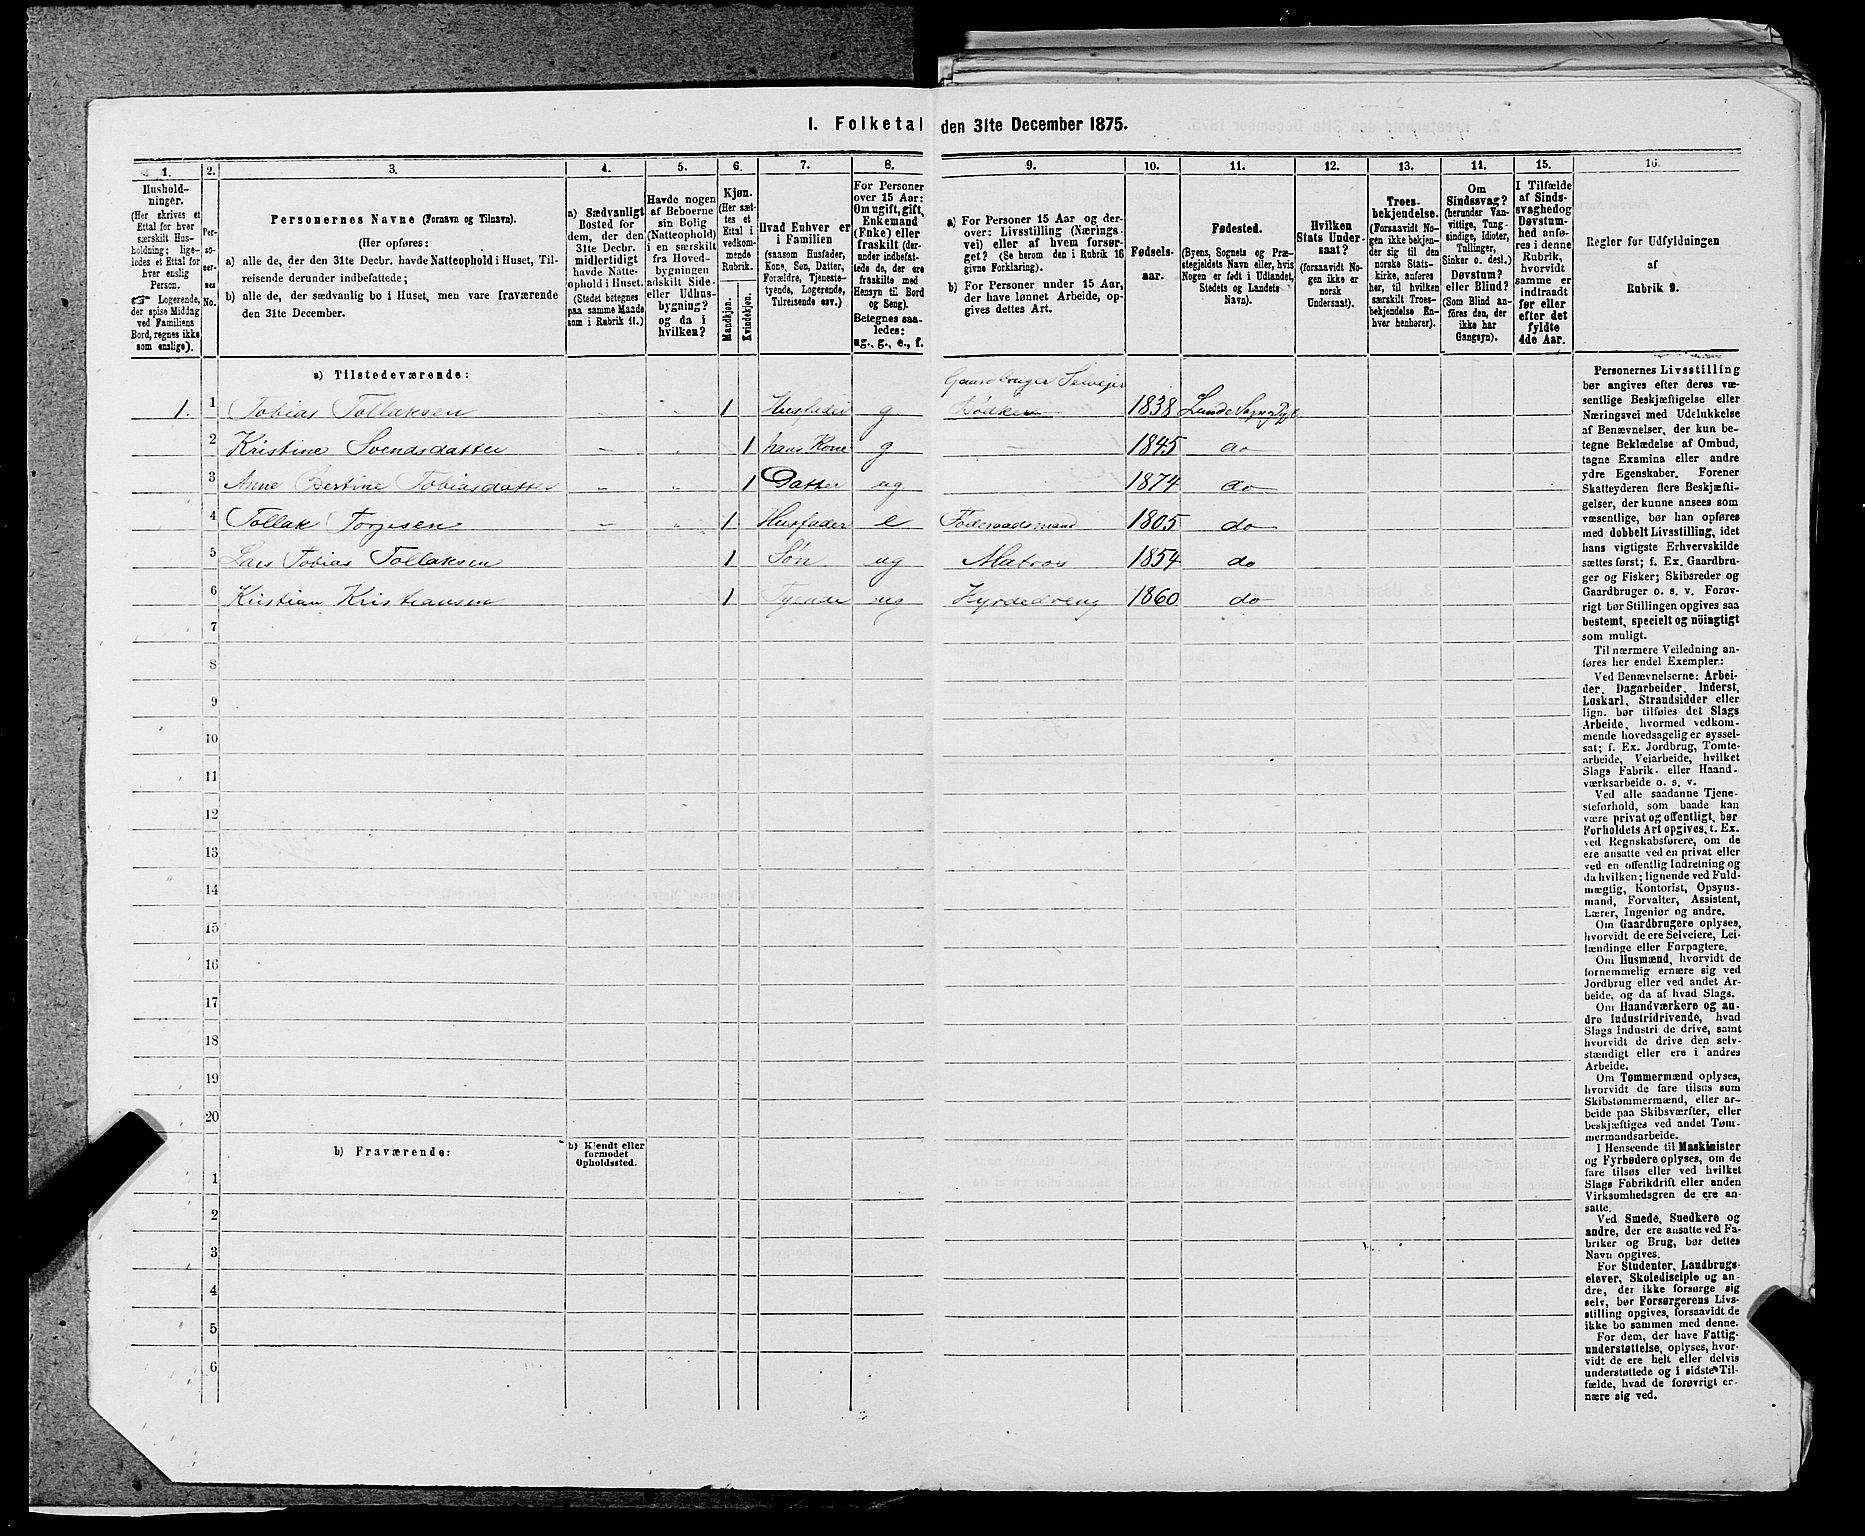 1. Folketal den 31te December 1875.
1. 2. 3. 4. 5. 6. 7. 8. 9. 10. 11. 12. 13. 14. 15. 16.
Hushold-
ninger.
(Her skrives et
Ettal for hver
særskilt Hus-
holdning; lige-
ledes et Ettal for
hver enslig
Person.
☞ Logerende,
der spise Middag
ved Familiens
Bord, regnes ikke
som enslige).
Per-
so-
ner-
nes
No.
Personernes Navne (Fornavn og Tilnavn).
(Her opføres:
a) alle de, der den 31te Decbr. havde Natteophold i Huset, Til-
reisende derunder indbefattede;
b) alle de, der sædvanlig bo i Huset, men vare fraværende
den 31te December.
a) Sædvanligt
Bosted for
dem, der den
31te Decbr.
midlertidigt
havde Natte-
ophold i Huset.
(Stedet betegnes
paa samme Maade
som i Rubrik 11.)
Havde nogen
af Beboerne
sin Bolig
(Natteophold)
i en særskilt
fra Hoved-
bygningen
adskilt Side-
eller Udhus-
bygning?
og da i
hvilken?
Kjøn.
(Her sæt-
tes et
Ettal i
vedkom-
mende
Rubrik.
Mandkjøn.
Kvindekjøn.
Hvad Enhver er
i Familien
(saasom Husfader,
Kone, Søn, Datter,
Forældre, Tjeneste-
tyende, Logerende,
Tilreisende osv.)
For Personer
over 15 Aar:
Om ugift, gift,
Enkemand
(Enke) eller
fraskilt (der-
under indbefat-
tede de, der ere
fraskilte med
Hensyn til Bord
og Seng).
Betegnes saa-
ledes:
ug., g., e., f.
a) For Personer 15 Aar og der-
over: Livsstilling (Nærings-
vei) eller af hvem forsør-
get? (Se herom den i Rubrik 16
givne Forklaring).
b) For Personer under 15 Aar,
der have lønnet Arbeide, op-
gives dettes Art.
Fødsels-
aar.
Fødested.
(Byens, Sognets og Præ-
stegjeldets Navn eller, hvis
Nogen er født i Udlandet,
Stedets og Landets
Navn).
Hvilken
Stats Under-
saat?
(forsaavidt No-
gen ikke er
norsk
Undersaat).
Troes-
bekjendelse.
(Forsaavidt No-
gen ikke bekjen-
der sig til den
norske Stats-
kirke, anføres
her, til hvilken
særskilt Troes-
bekjendelse En-
hver henhører).
Om
Sindssvag?
(herunder Van-
vittige, Tung-
sindige, Idioter,
Tullinger,
Sinker o. desl.)
Døvstum?
eller Blind?
(Som Blind an-
føres den, der
ikke har
Gangsyn).
I Tilfælde
af Sinds-
svaghed og
Døvstum-
hed anfø-
res i denne
Rubrik,
hvorvidt
samme er
indtraadt
før eller
efter det
fyldte
4de Aar.
Regler for Udfyldningen
af
Rubrik 9.
a) Tilstedeværende:
Gaardbruger Selveier
1. 1 Tobias Tollaksen 1 Husfader g Bødker 1838 Lunde Sogn
2 Kristine Svendsdatter 1 hans Kone g 1845 do
3 Anne Bertine Tobiasdatter 1 Datter ug 1874 do
4 Tollak Torjesen 1 Husfader e Føderaadsmand 1805 do
5 Lars Tobias Tollaksen 1 Søn ug Matros 1854 do
6 Kristian Kristiansen 1 Tyende ug Hyrdedreng 1860 do
7
8
9
10
11
12
13
14
15
16
17
18
19
20
b) Fraværende:
b) Kjendt eller
formodet
Opholdssted.
1
2
3
4
5
6
Personernes Livsstilling
bør angives efter deres væ-
sentlige Beskjæftigelse eller
Næringsvei med Udelukkelse
af Benævnelser, der kun be-
tegne Beklædelse af Ombud,
tagne Examina eller andre
ydre Egenskaber. Forener
Skatteyderen flere Beskjæfti-
gelser, der kunne ansees som
væsentlige, bør han opføres
med dobbelt Livsstilling, idet
hans vigtigste Erhvervskilde
sættes først; f. Ex. Gaardbru-
ger og Fisker; Skibsreder og
Gaardbruger o. s. v. Forøv-
rigt bør Stillingen opgives saa
bestemt, specielt og nöiagtigt
som muligt.
Til nærmere Veiledning an-
føres her endel Exempler:
Ved Benævnelserne: Arbei-
der, Dagarbeider, Inderst,
Løskarl, Strandsidder eller
lign. bør tilføies det Slags
Arbeide, hvormed vedkom-
mende hovedsagelig er syssel-
sat; f. Ex. Jordbrug, Tomte-
arbeide, Veiarbeide, hvilket
Slags Fabrik- eller Haand-
værksarbeide o. s. v.
Ved alle saadanne Tjene-
steforhold, som baade kan
være privat og offentligt, bør
Forholdets Art opgives, t. Ex.
ved Regnskabsførere, om de
ere ansatte ved en privat eller
ved en offentlig Indretning og
da hvilken; lignende ved Fuld-
mægtig, Kontorist, Opsyns-
mand, Forvalter, Assistent,
Lærer, Ingeniør og andre.
Om Gaardbrugere oplyses,
hvorvidt de ere Selveiere, Lei-
lændinge eller Forpagtere.
Om Husmænd, hvorvidt de
fornemmelig ernære sig ved
Jordbrug eller ved andet Ar-
beide, og da af hvad Slags.
Om Haandværkere og an-
dre Industridrivende, hvad
Slags Industri de drive, samt
hvorvidt de drive den selv-
stændigt eller ere i andres
Arbeide.
Om Tømmermænd oplyses,
hvorvidt de fare tilsøs som
Skibstømmermænd, eller ar-
beide paa Skibsværfter, eller
beskjæftiges ved andet Tøm-
mermandsarbeide.
I Henseende til Maskinister
og Fyrbødere oplyses, om de
fare tilsøs eller ved hvilket
Slags Fabrikdrift eller anden
Virksomhedsgren de ere an-
satte.
Ved Smede, Snedkere og
andre, der ere ansatte ved Fa-
briker og Brug, bør dettes
Navn opgives.
For Studenter, Landbrugs-
elever, Skoledisciple og an-
dre, der ikke forsørge sig
selv, bør Forsørgerens Livs-
stilling opgives, forsaavidt de
ikke bo sammen med denne.
For dem, der have Fattig-
understøttelse, oplyses, hvor-
vidt de ere helt eller delvis
understøttede og i sidste Til-
fælde, hvad de forøvrigt er-
nære sig ved.